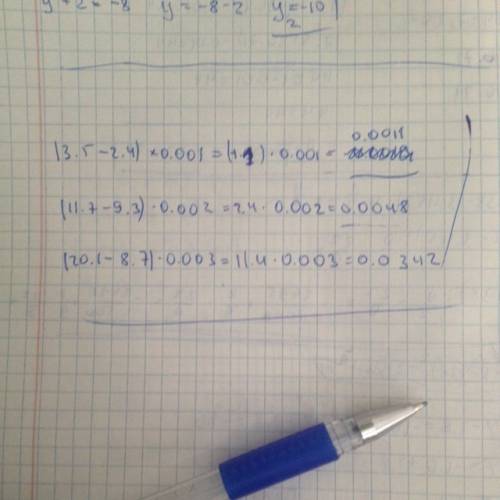 y+2=-8 y=-8-2 y=-10
2
0.0011
(3.5-2.4)×0.001=(1.1)·0.001=
(11.7-9.3)·0.002=2.4·0.002=0.0048
(20.1-8.7)·0.003=11.4·0.003=0.0342